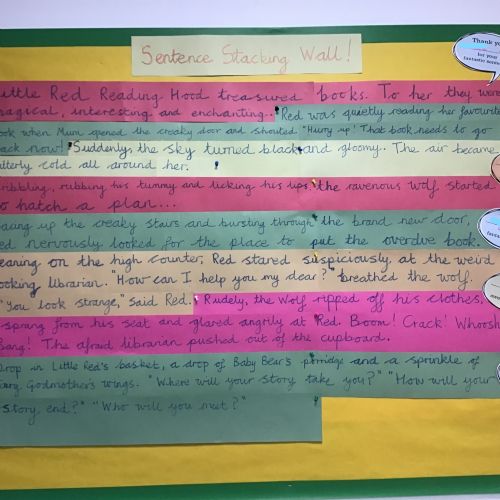 Sentence Stacking Wall!
Little Red Reading Hood treasured books. To her they were
magical, interesting and enchanting. Red was quietly reading her favourite
book when Mum opened the creaky door and shouted "Hurry up! That book needs to go
back now!" Suddenly, the sky turned black and gloomy. The air became
utterly cold all around her.
Dribbling, rubbing his tummy and licking his lips, the ravenous wolf started
to hatch a plan...
up the creaky stairs and bursting through the brand new door,
Red nervously looked for the place to put the overdue book.
Leaning on the high counter, Red stared suspiciously, at the weird
looking librarian. "How can I help you my dear?" breathed the wolf.
"You look strange," said Red. Rudely, the Wolf ripped off his clothes,
sprang from his seat and glared angrily at Red. Boom! Crack! Whoosh
Bang! The afraid librarian pushed out of the cupboard.
Drop in Little Red's basket, a drop of Baby Bear's porridge and a sprinkle of
Fairy Godmother's wings. "Where will your story take you?" "How will your
story, end?" "Who will you meet?"
Thank you
for your
fantastic